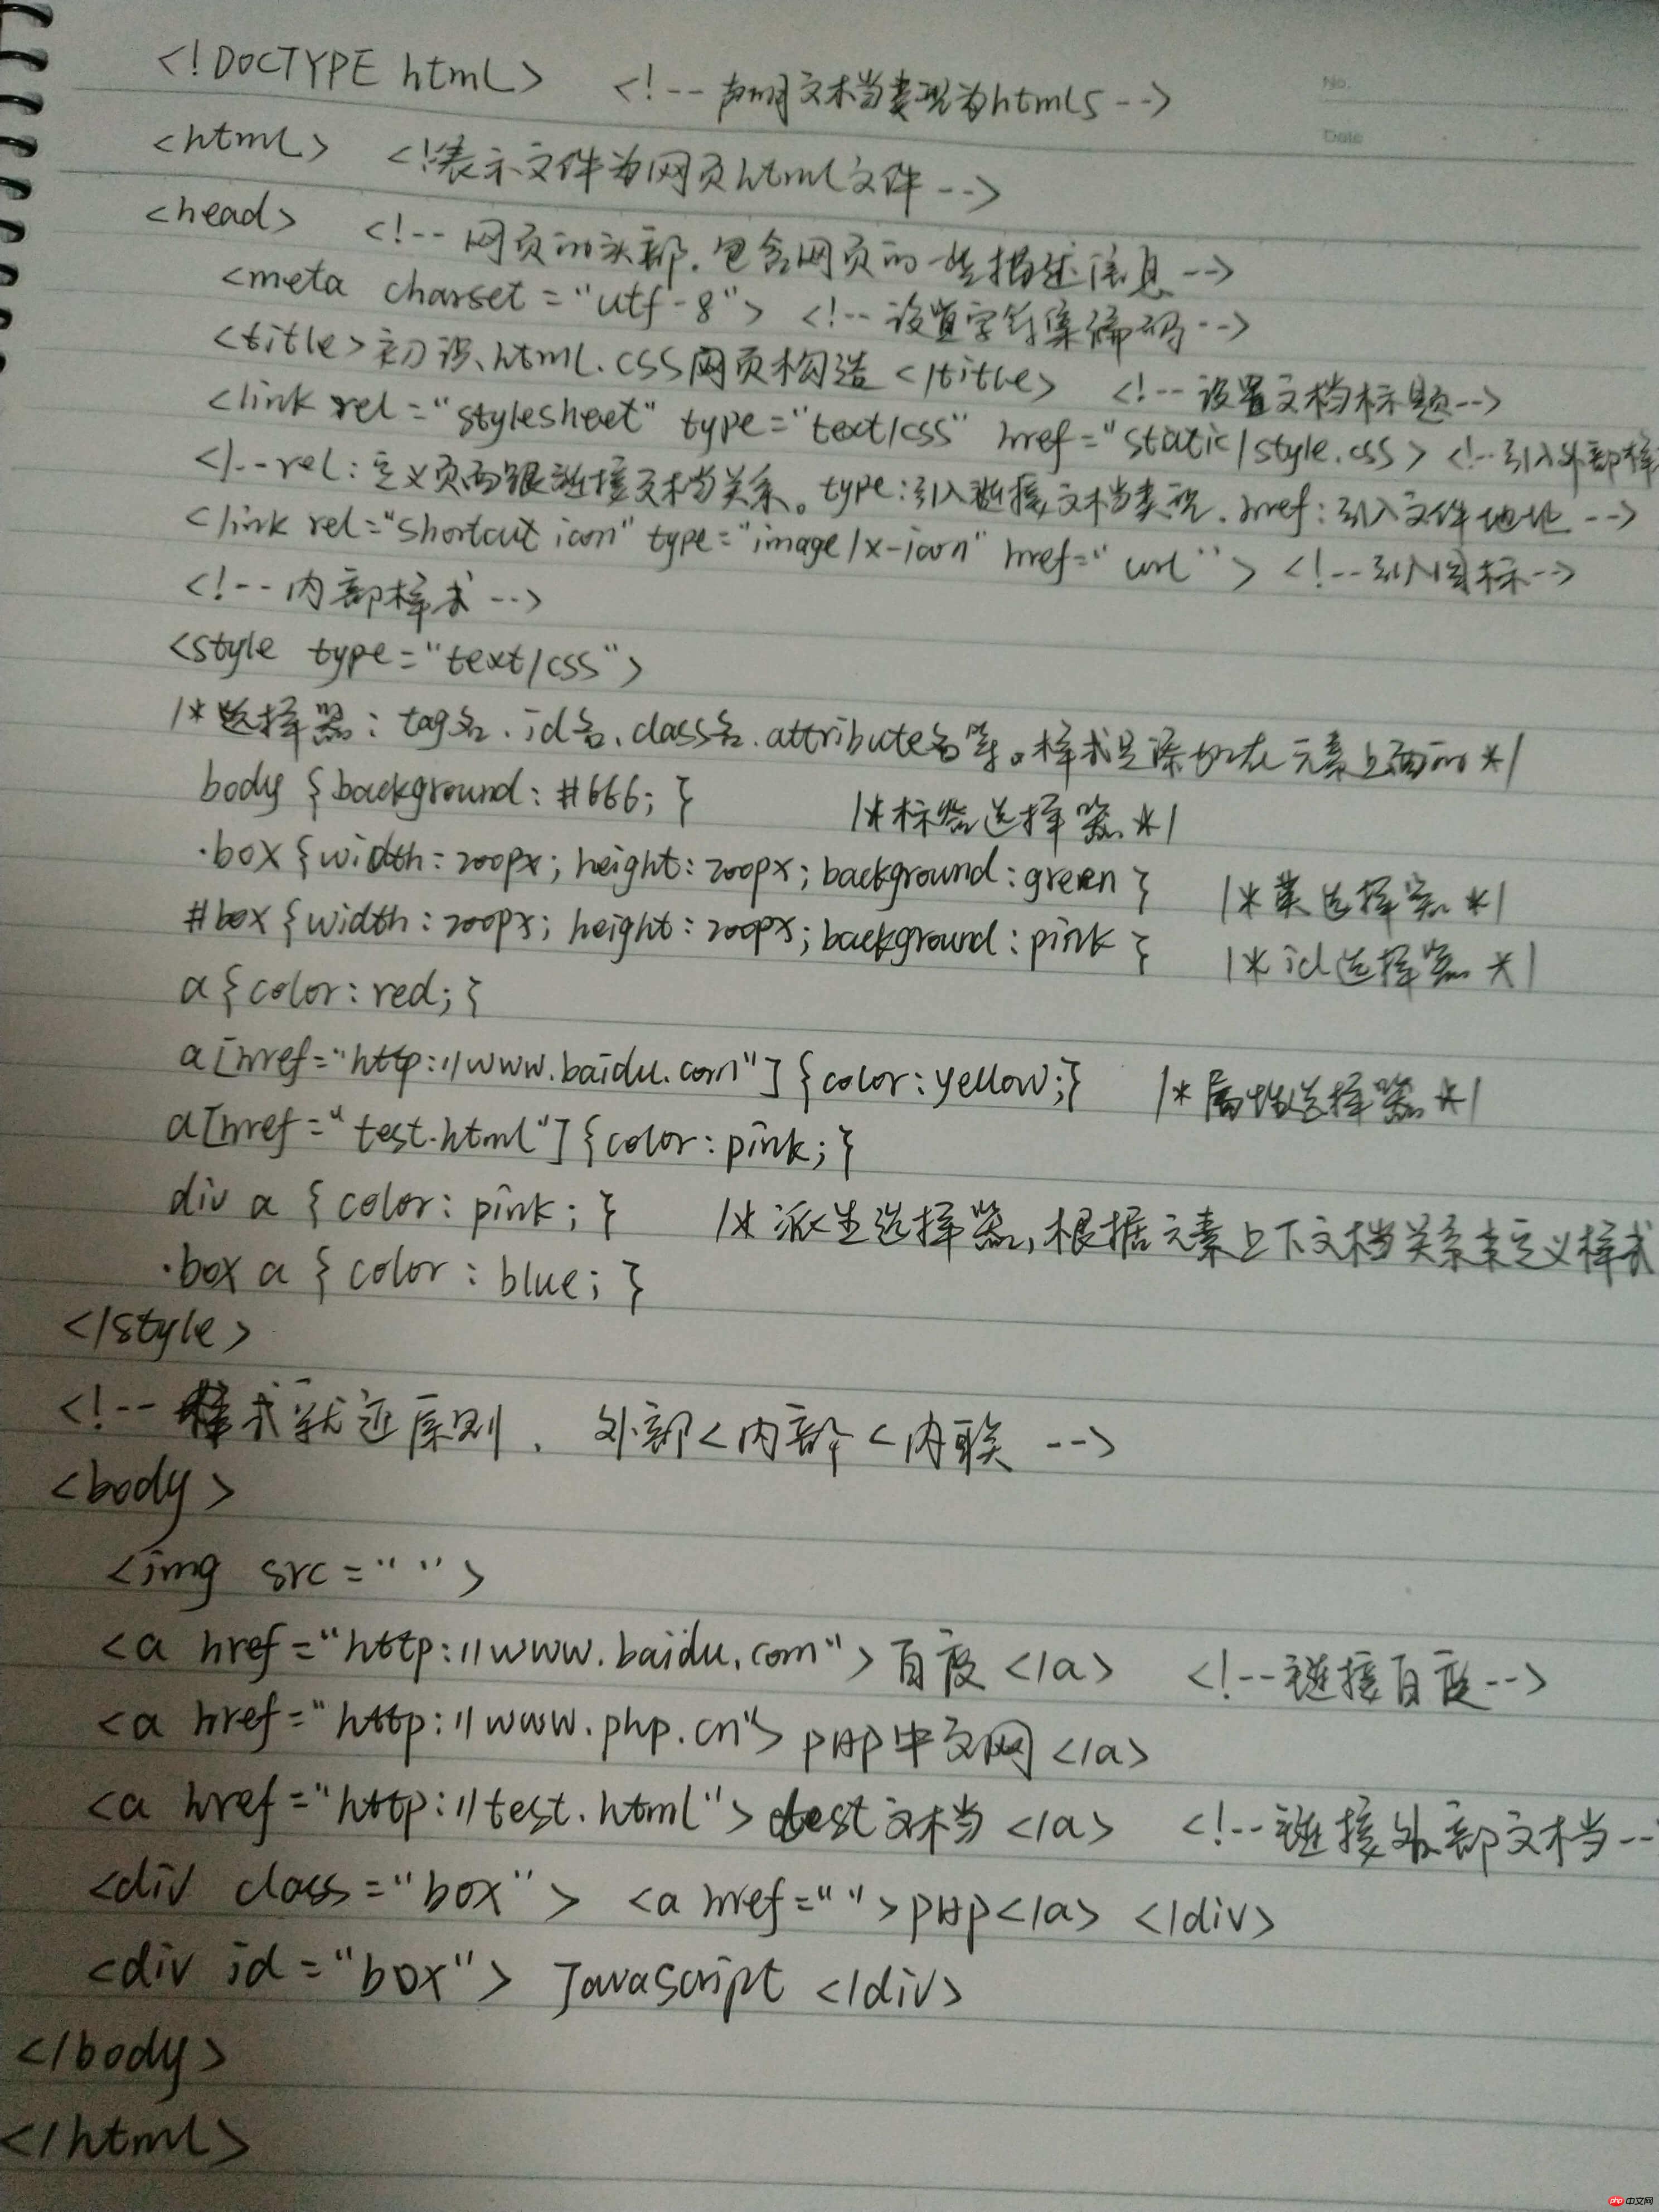 <!DOCTYPE html> <!-- 声明文档类型为html5 -->
No.
Date
<html> <!表示文件为网页html文件 -->
<head> <!-- 网页的头部.包含网页的一些描述信息 -->
<meta charset="utf-8"> <!-- 设置字符集编码 -->
<title>初识、html.css网页构造</title> <!-- 设置文档标题-->
<link rel="stylesheet" type="text/css" href="static/style.css> <!--引入外部样
<!--rel:定义页面跟链接文档关系。type:引入链接文档类型.href:引入文件地址 -->
<link rel="shortcut icon" type="image/x-icon" href="url"> <!--引入图标-->
<!--内部样式-->
<style type="text/css">
/*选择器:tag名.id名、class名.attribute名等。样式是添加在元素上面的*/
body {background:#666;} /*标签选择器*/
.box{width:200px;height:200px;background:green} /*类选择器*/
#box{width:200px;height:200px;background:pink} /*id选择器*/
a{color:red;{
a[href="http://www.baidu.com"]{color:yellow;} /*属性选择器*/
a[href="test.html"]{color:pink;}
div a {color:pink;} /*派生选择器,根据元素上下文档关系来定义样式
.box a {color:blue;}
</style>
<!-- 样式就近原则. 外部<内部<内联 -->
<body>
<img src="">
<a href="http://www.baidu.com">百度</a> <!--链接百度-->
<a href="http://www.php.cn">PHP中文网</a>
<a href="http://test.html">test文档</a> <!--链接外部文档--
<div class="box"> <a href="">PHP</a> </div>
<div id="box"> Javascript </div>
</body>
</html>
php 中文网